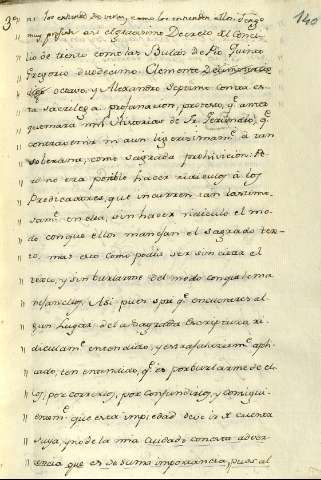 3.º 140
ni los entiendo de veras, como los entienden ellos. Tengo
muy presente así el gravissimo Decreto del Conci-
lio de trento como las Bulas de Pio Quinto
Gregorio duodecimo, Clemente
octavo, y Alexandro Septimo contra es-
ta sacrilega profanacion, protesto, q.e antes
quemara mil Historias de Fr. Gerundio, q.e
contravenir ni aun ligerissimam.te à tan
soberana, como sagrada prohivicion. Pe-
ro no era posible hacer ridiculos à los
Predicadores, que incurren tan lastimo-
sam.te en ella, sin hacer ridiculo el mo-
do con que ellos manejan el sagrado tex-
to, mas esto como podia ser sin citar el
texto, y sin burlarme del modo con que le ma-
nejan ellos. Asi pues spre q.e encontrares al-
gun lugar de la Sagrada Escriptura ri-
diculam.te entendido, y estrafalariam.te apli-
cado, ten entendido, q.e es por burlarme de el-
los, por correrlos, por confundirlos, y consigui-
entem.te que esta impiedad deve ir à cuenta
suya, y no de la mia Cuidado con esta adver-
tencia que es de suma importancia, pues al